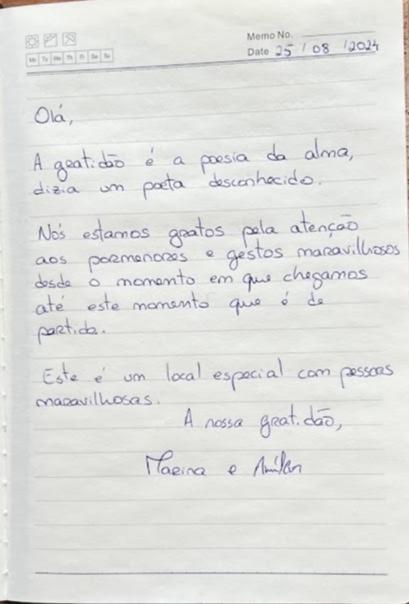 Memo No.
Mo Tu We Th Fr Sa Su
Date 25 / 08 / 2024
Olá,
A gratidão é a poesia da alma,
dizia um poeta desconhecido.
Nós estamos gratos pela atenção
aos pormenores e gestos maravilhosos
desde o momento em que chegamos
até este momento que é de
partida.
Este é um local especial com pessoas
maravilhosas.
A nossa gratidão,
Marina e